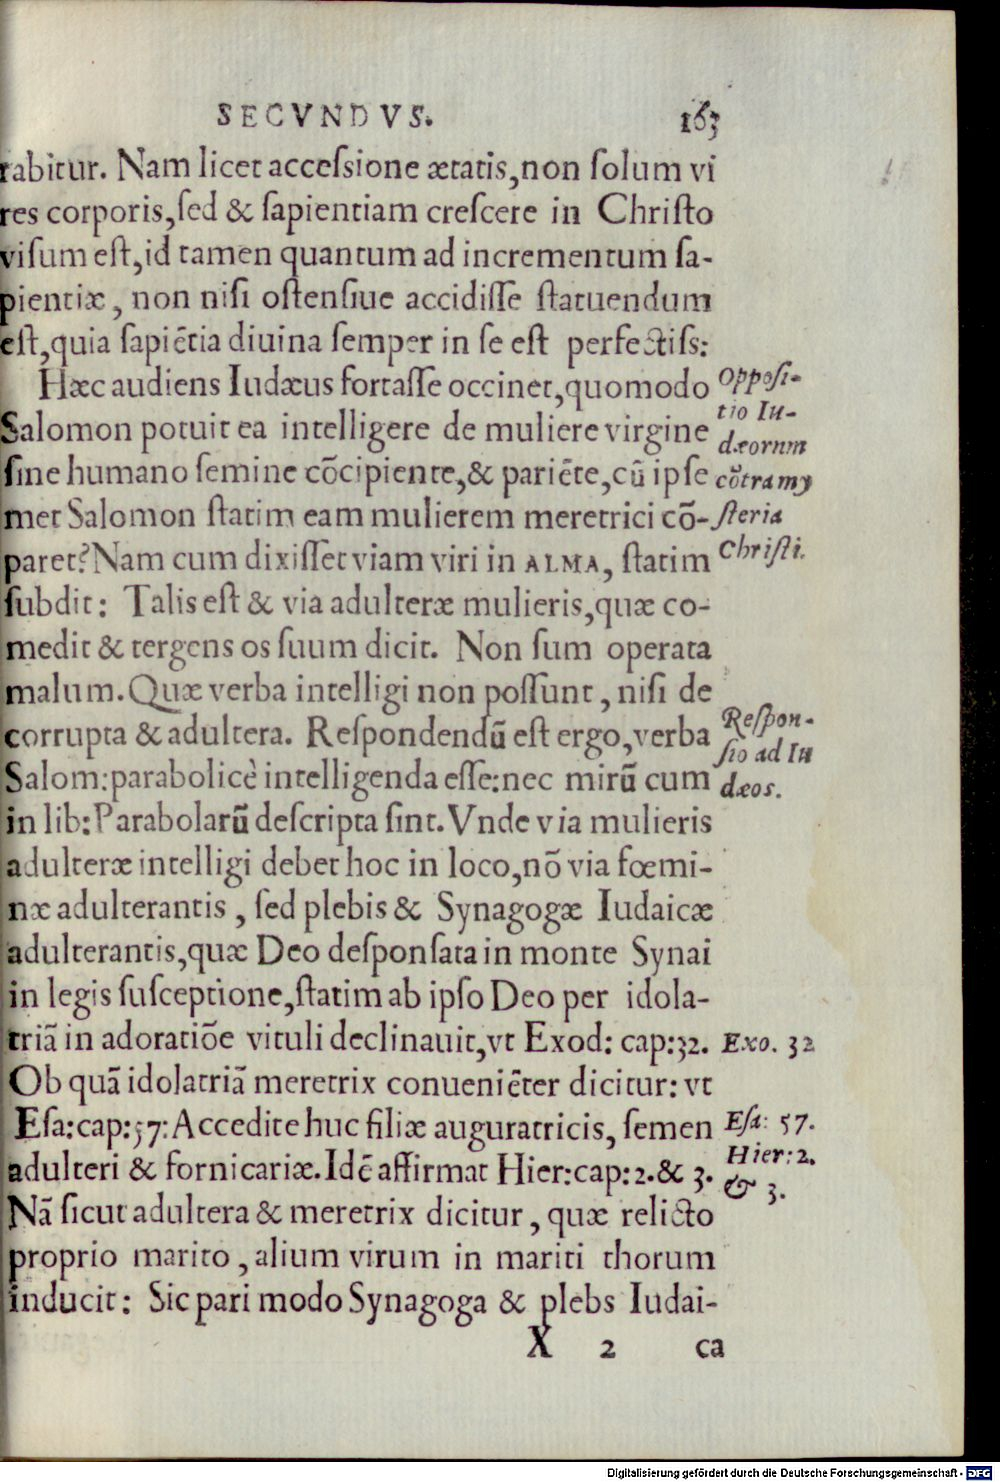 SECVNDVS. 163
rabitur. Nam licet accessione ætatis, non solum vi
res corporis, sed & sapientiam crescere in Christo
visum est, id tamen quantum ad incrementum sa-
pientiæ, non nisi ostensiue accidisse statuendum
est, quia sapiẽtia diuina semper in se est perfectiss:
Hæc audiens Iudæus fortasse occinet, quomodo
Salomon potuit ea intelligere de muliere virgine
sine humano semine cõcipiente, & pariẽte, cũ ipse
met Salomon statim eam mulierem meretrici cõ-
paret? Nam cum dixisset viam viri in ALMA, statim
subdit: Talis est & via adulteræ mulieris, quæ co-
medit & tergens os suum dicit. Non sum operata
malum. Quæ verba intelligi non possunt, nisi de
corrupta & adultera. Respondendũ est ergo, verba
Salom: parabolicè intelligenda esse: nec mirũ cum
in lib: Parabolarũ descripta sint. Vnde via mulieris
adulteræ intelligi debet hoc in loco, nõ via fœmi-
næ adulterantis, sed plebis & Synagogæ Iudaicæ
adulterantis, quæ Deo desponsata in monte Synai
in legis susceptione, statim ab ipso Deo per idola-
triã in adoratiõe vituli declinauit, vt Exod: cap: 32.
Ob quã idolatriã meretrix conueniẽter dicitur: vt
Esa: cap: 57: Accedite huc filiæ auguratricis, semen
adulteri & fornicariæ. Idẽ affirmat Hier: cap: 2. & 3.
Nã sicut adultera & meretrix dicitur, quæ relicto
proprio marito, alium virum in mariti thorum
inducit: Sic pari modo Synagoga & plebs Iudai-
X 2 ca
Opposi-
tio Iu-
dæorum
cõtra my
steria
Christi.
Respon-
sio ad Iu
dæos.
Exo. 32
Esa: 57.
Hier: 2.
& 3.
Digitalisierung gefördert durch die Deutsche Forschungsgemeinschaft - DFG